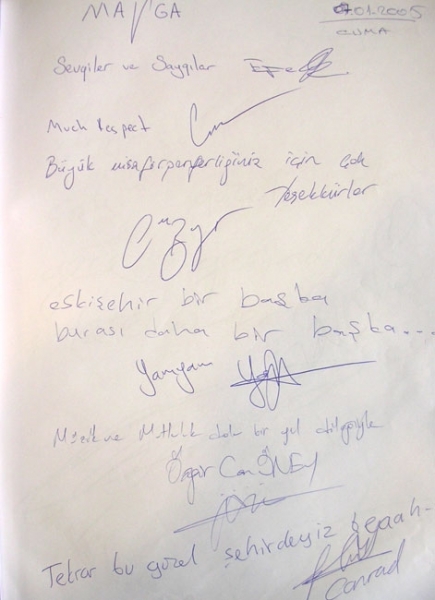 MANGA
07.01.2005
CUMA
Sevgiler ve Saygılar EFe
Much respect
Büyük misafirperverliğiniz için çok
Teşekkürler
eskişehir bir başka
burası daha bir başka...
Yamyam
Müzik ve Mutluluk dolu bir yıl dileğiyle
Özgür Can ÖNEY
Tekrar bu güzel şehirdeyiz
Conrad